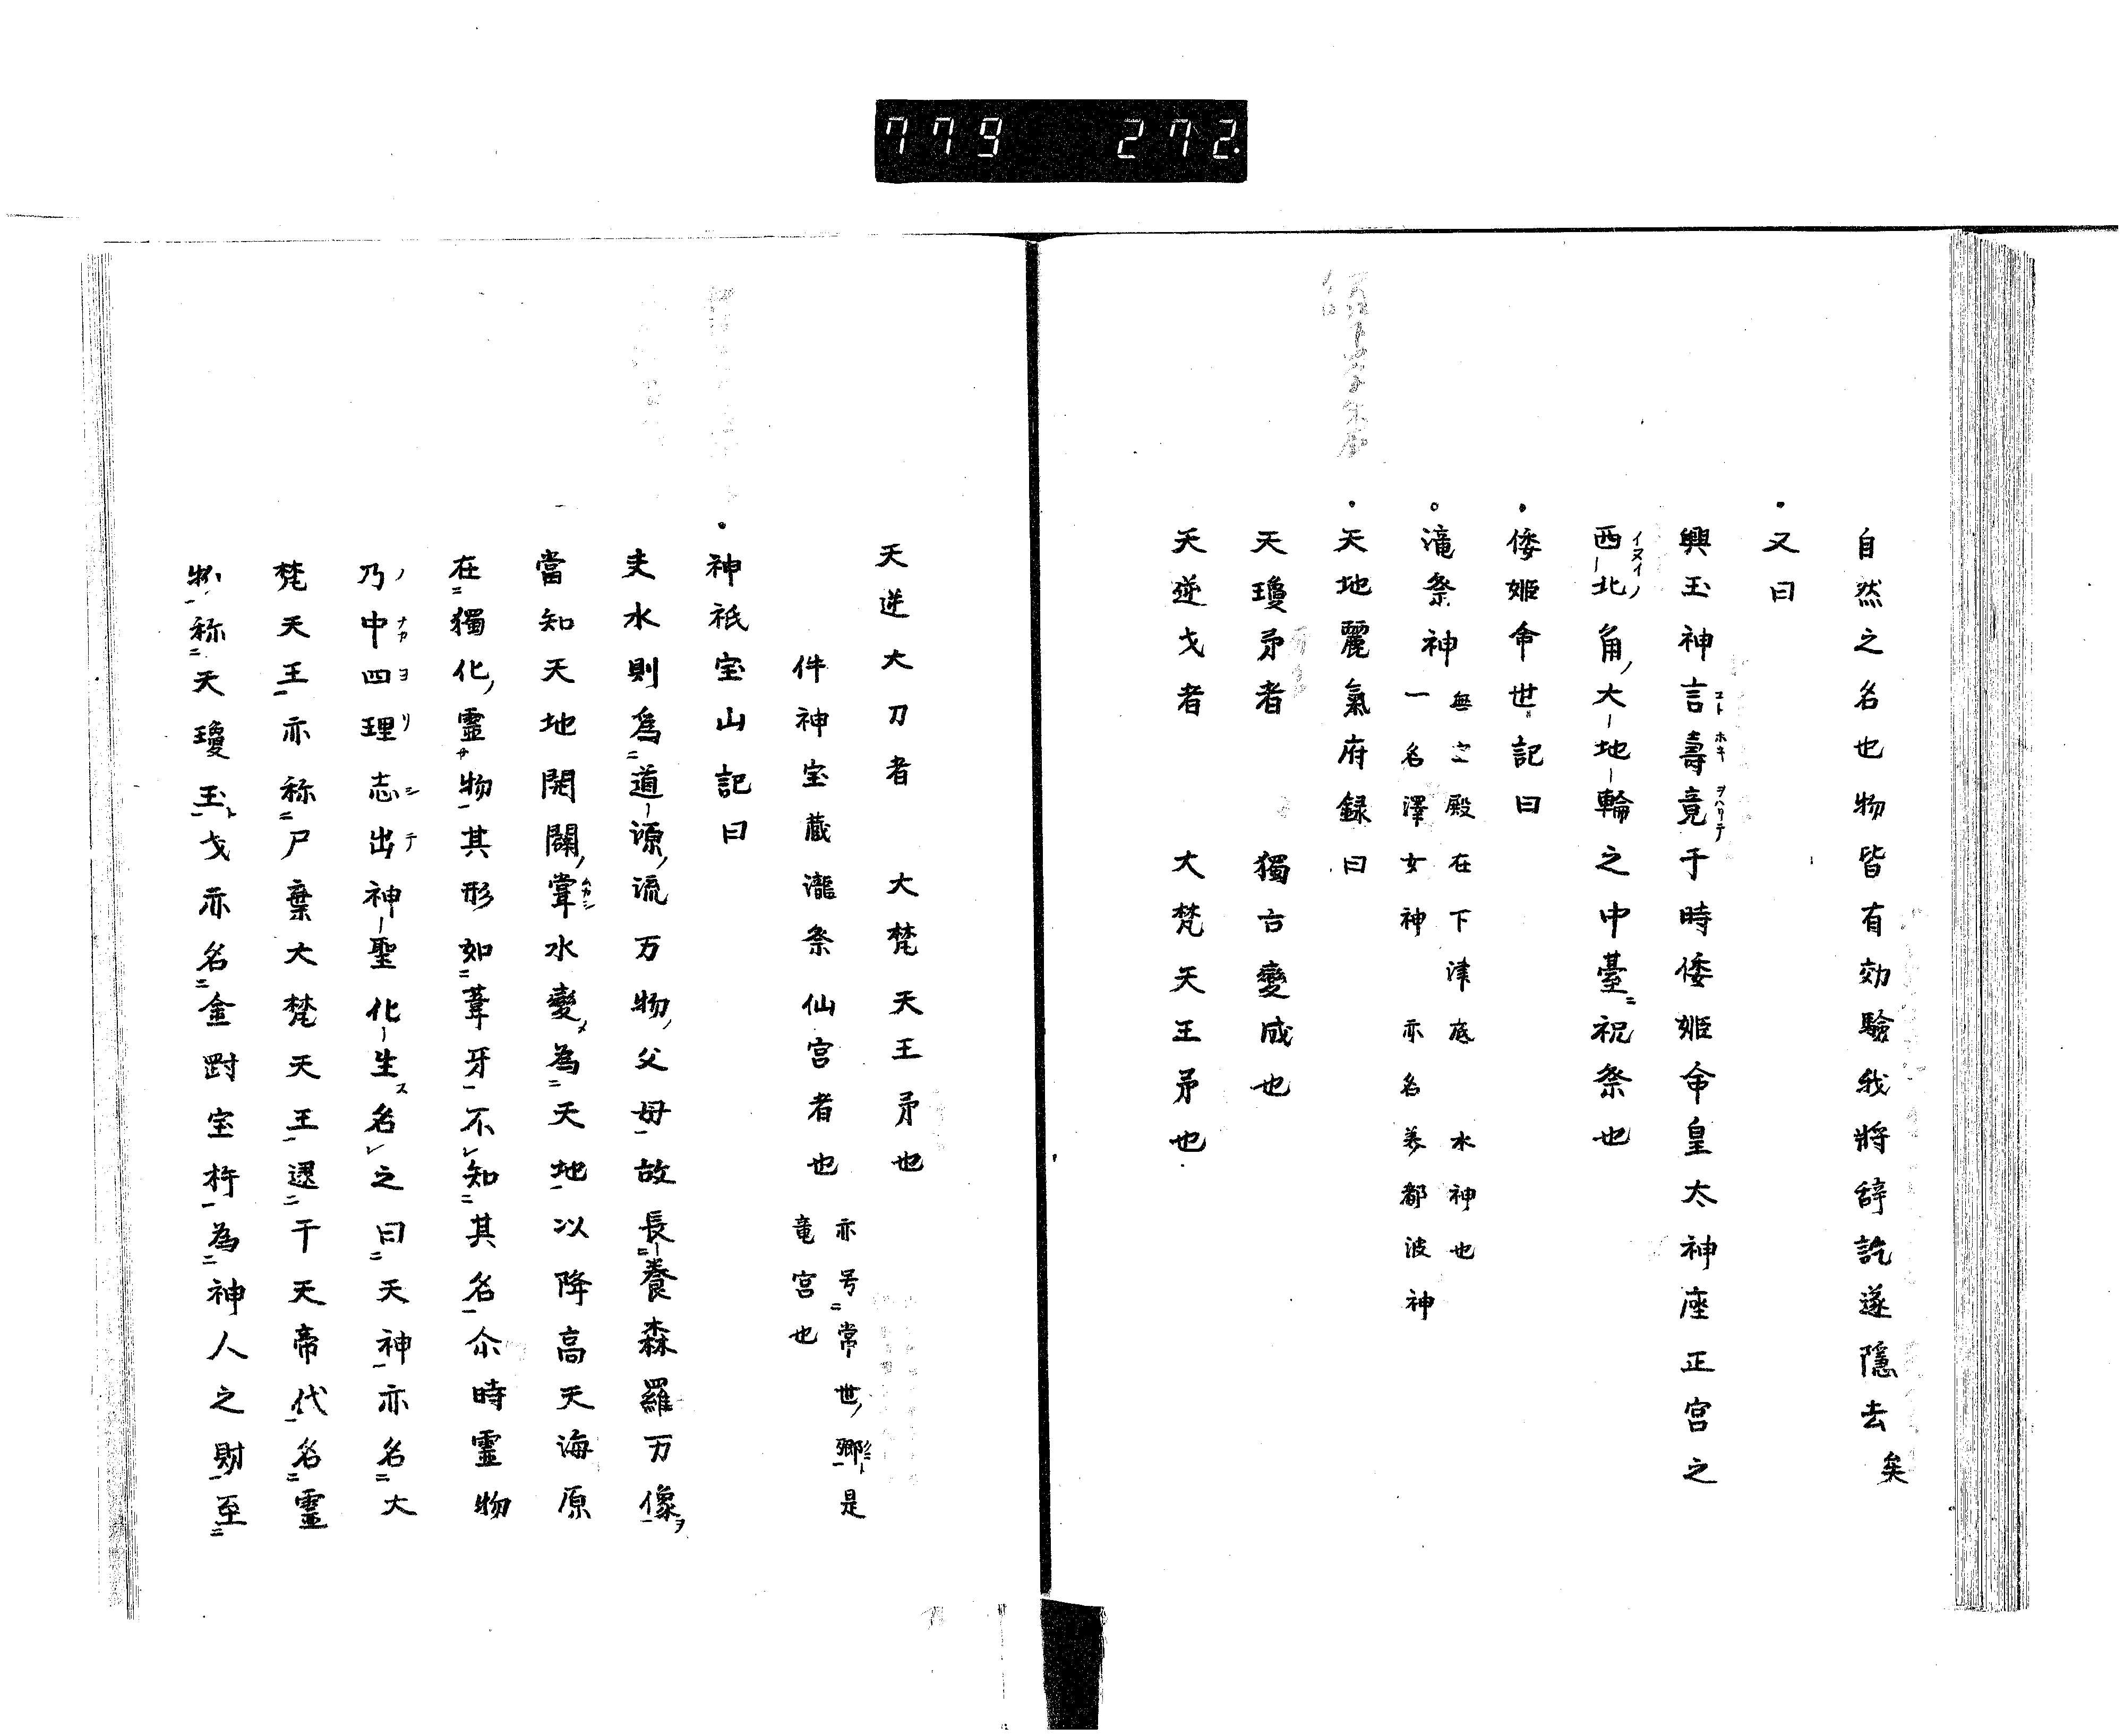 779 272.
自然之名也物皆有効驗我將辞訖遂隱去矣
・又曰
興玉神言壽竟于時倭姫命皇太神座正宮之
西北角大地輪之中臺祝祭也
・倭姫命世記曰
滝祭神 無宝殿在下津底 水神也
一名澤女神 亦名美都波神
・天地麗氣府録曰
天瓊矛者 獨古變成也
天逆戈者 大梵天王矛也
天逆大刀者 大梵天王矛也
件神宝蔵瀧祭仙宮者也 亦号常世郷是
竜宮也
・神祇宝山記曰
夫水則為道源流万物父母故長養森羅万像
當知天地開闢嘗水變為天地以降高天海原
在獨化霊物其形如葦牙不知其名尒時霊物
乃中四理志出神聖化生名之曰天神亦名大
梵天王亦称尸棄大梵天王逮于天帝代名霊
物称天瓊玉戈亦名金剛宝杵為神人之財至